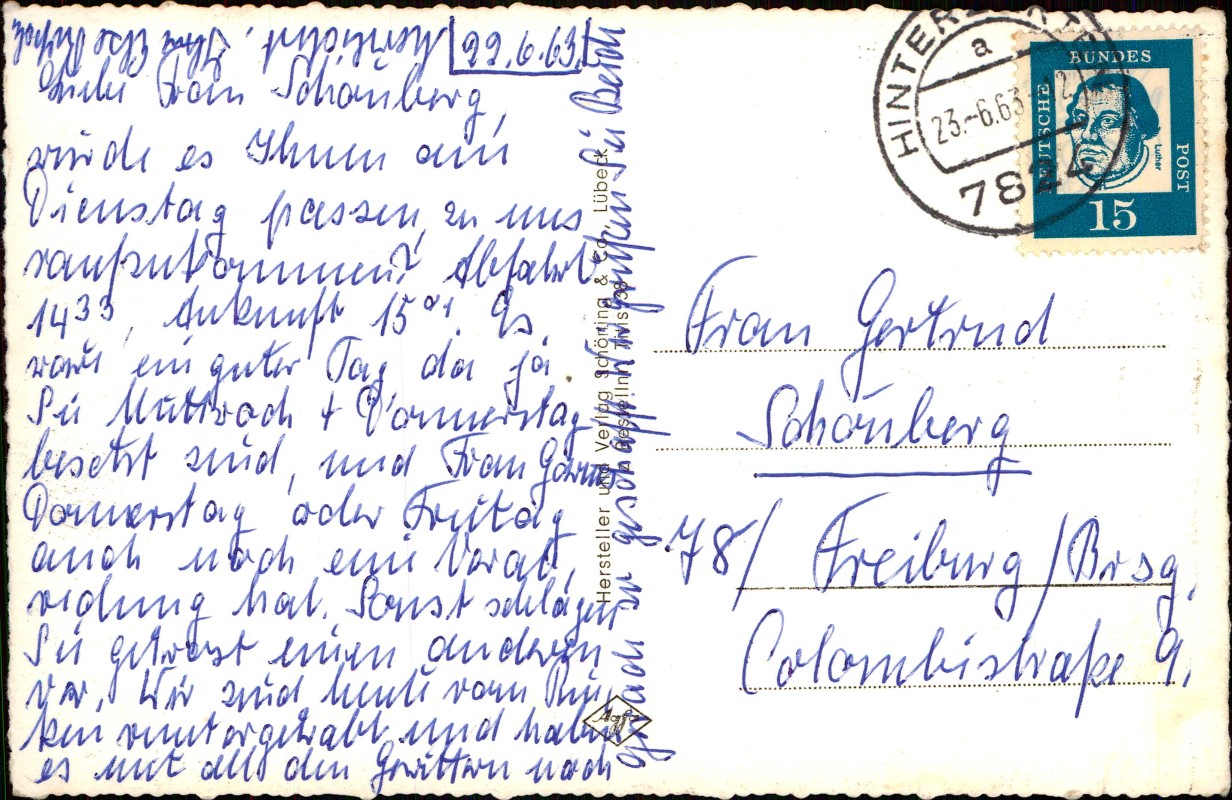 22.6.63.
Liebe Frau Schönberg,
würde es Ihnen am
Dienstag passen, zu uns
raufzukommen? Abfahrt
14³³, Ankunft 15⁰¹. Es
wäre ein guter Tag da ja
Sie Mittwoch + Donnerstag
besetzt sind, und Frau
Donnerstag oder Freitag
auch noch eine Verab,
redung hat. Sonst schlagen
Sie getrost einen anderen
vor. Wir sind heute vom Rin,
ken runtergetrabt und haben
es mit all den Gewittern noch
gerade so geschafft. Wir grüßen Sie beide
herzlichst. Ihre Else
Hersteller und Verlag Schöning & Co., Lübeck
Bestellnr.
Agfa
HINTERZARTEN
a
23.-6.63.-12
7824
DEUTSCHE
BUNDES
POST
Luther
15
Frau Gertrud
Schönberg
78/ Freiburg/Brsg.
Colombistraße 9.